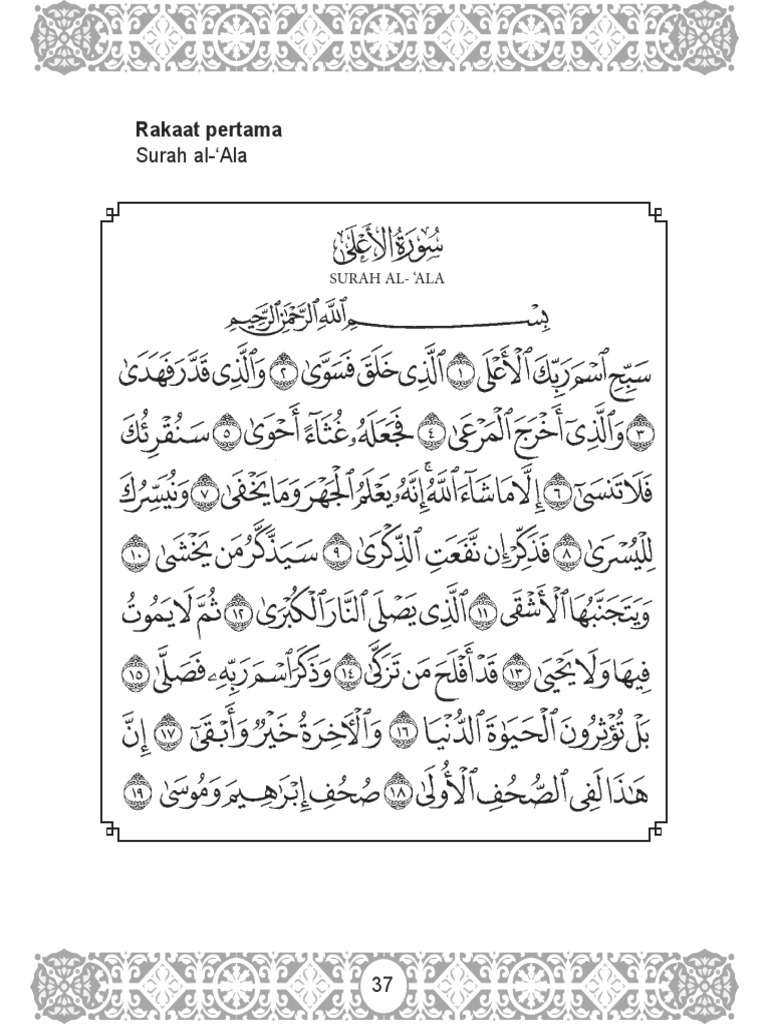 Rakaat pertama
Surah al-‘Ala
سُورَةُ الأَعْلَىٰ
SURAH AL- ‘ALA
بِسْمِ ٱللَّهِ ٱلرَّحْمَٰنِ ٱلرَّحِيمِ
سَبِّحِ ٱسْمَ رَبِّكَ ٱلْأَعْلَى ١ ٱلَّذِى خَلَقَ فَسَوَّىٰ ٢ وَٱلَّذِى قَدَّرَ فَهَدَىٰ
٣ وَٱلَّذِىٓ أَخْرَجَ ٱلْمَرْعَىٰ ٤ فَجَعَلَهُۥ غُثَآءً أَحْوَىٰ ٥ سَنُقْرِئُكَ
فَلَا تَنسَىٰٓ ٦ إِلَّا مَا شَآءَ ٱللَّهُ ۚ إِنَّهُۥ يَعْلَمُ ٱلْجَهْرَ وَمَا يَخْفَىٰ ٧ وَنُيَسِّرُكَ
لِلْيُسْرَىٰ ٨ فَذَكِّرْ إِن نَّفَعَتِ ٱلذِّكْرَىٰ ٩ سَيَذَّكَّرُ مَن يَخْشَىٰ ١٠
وَيَتَجَنَّبُهَا ٱلْأَشْقَى ١١ ٱلَّذِى يَصْلَى ٱلنَّارَ ٱلْكُبْرَىٰ ١٢ ثُمَّ لَا يَمُوتُ
فِيهَا وَلَا يَحْيَىٰ ١٣ قَدْ أَفْلَحَ مَن تَزَكَّىٰ ١٤ وَذَكَرَ ٱسْمَ رَبِّهِۦ فَصَلَّىٰ ١٥
بَلْ تُؤْثِرُونَ ٱلْحَيَوٰةَ ٱلدُّنْيَا ١٦ وَٱلْءَاخِرَةُ خَيْرٌ وَأَبْقَىٰٓ ١٧ إِنَّ
هَٰذَا لَفِى ٱلصُّحُفِ ٱلْأُولَىٰ ١٨ صُحُفِ إِبْرَٰهِيمَ وَمُوسَىٰ ١٩
37